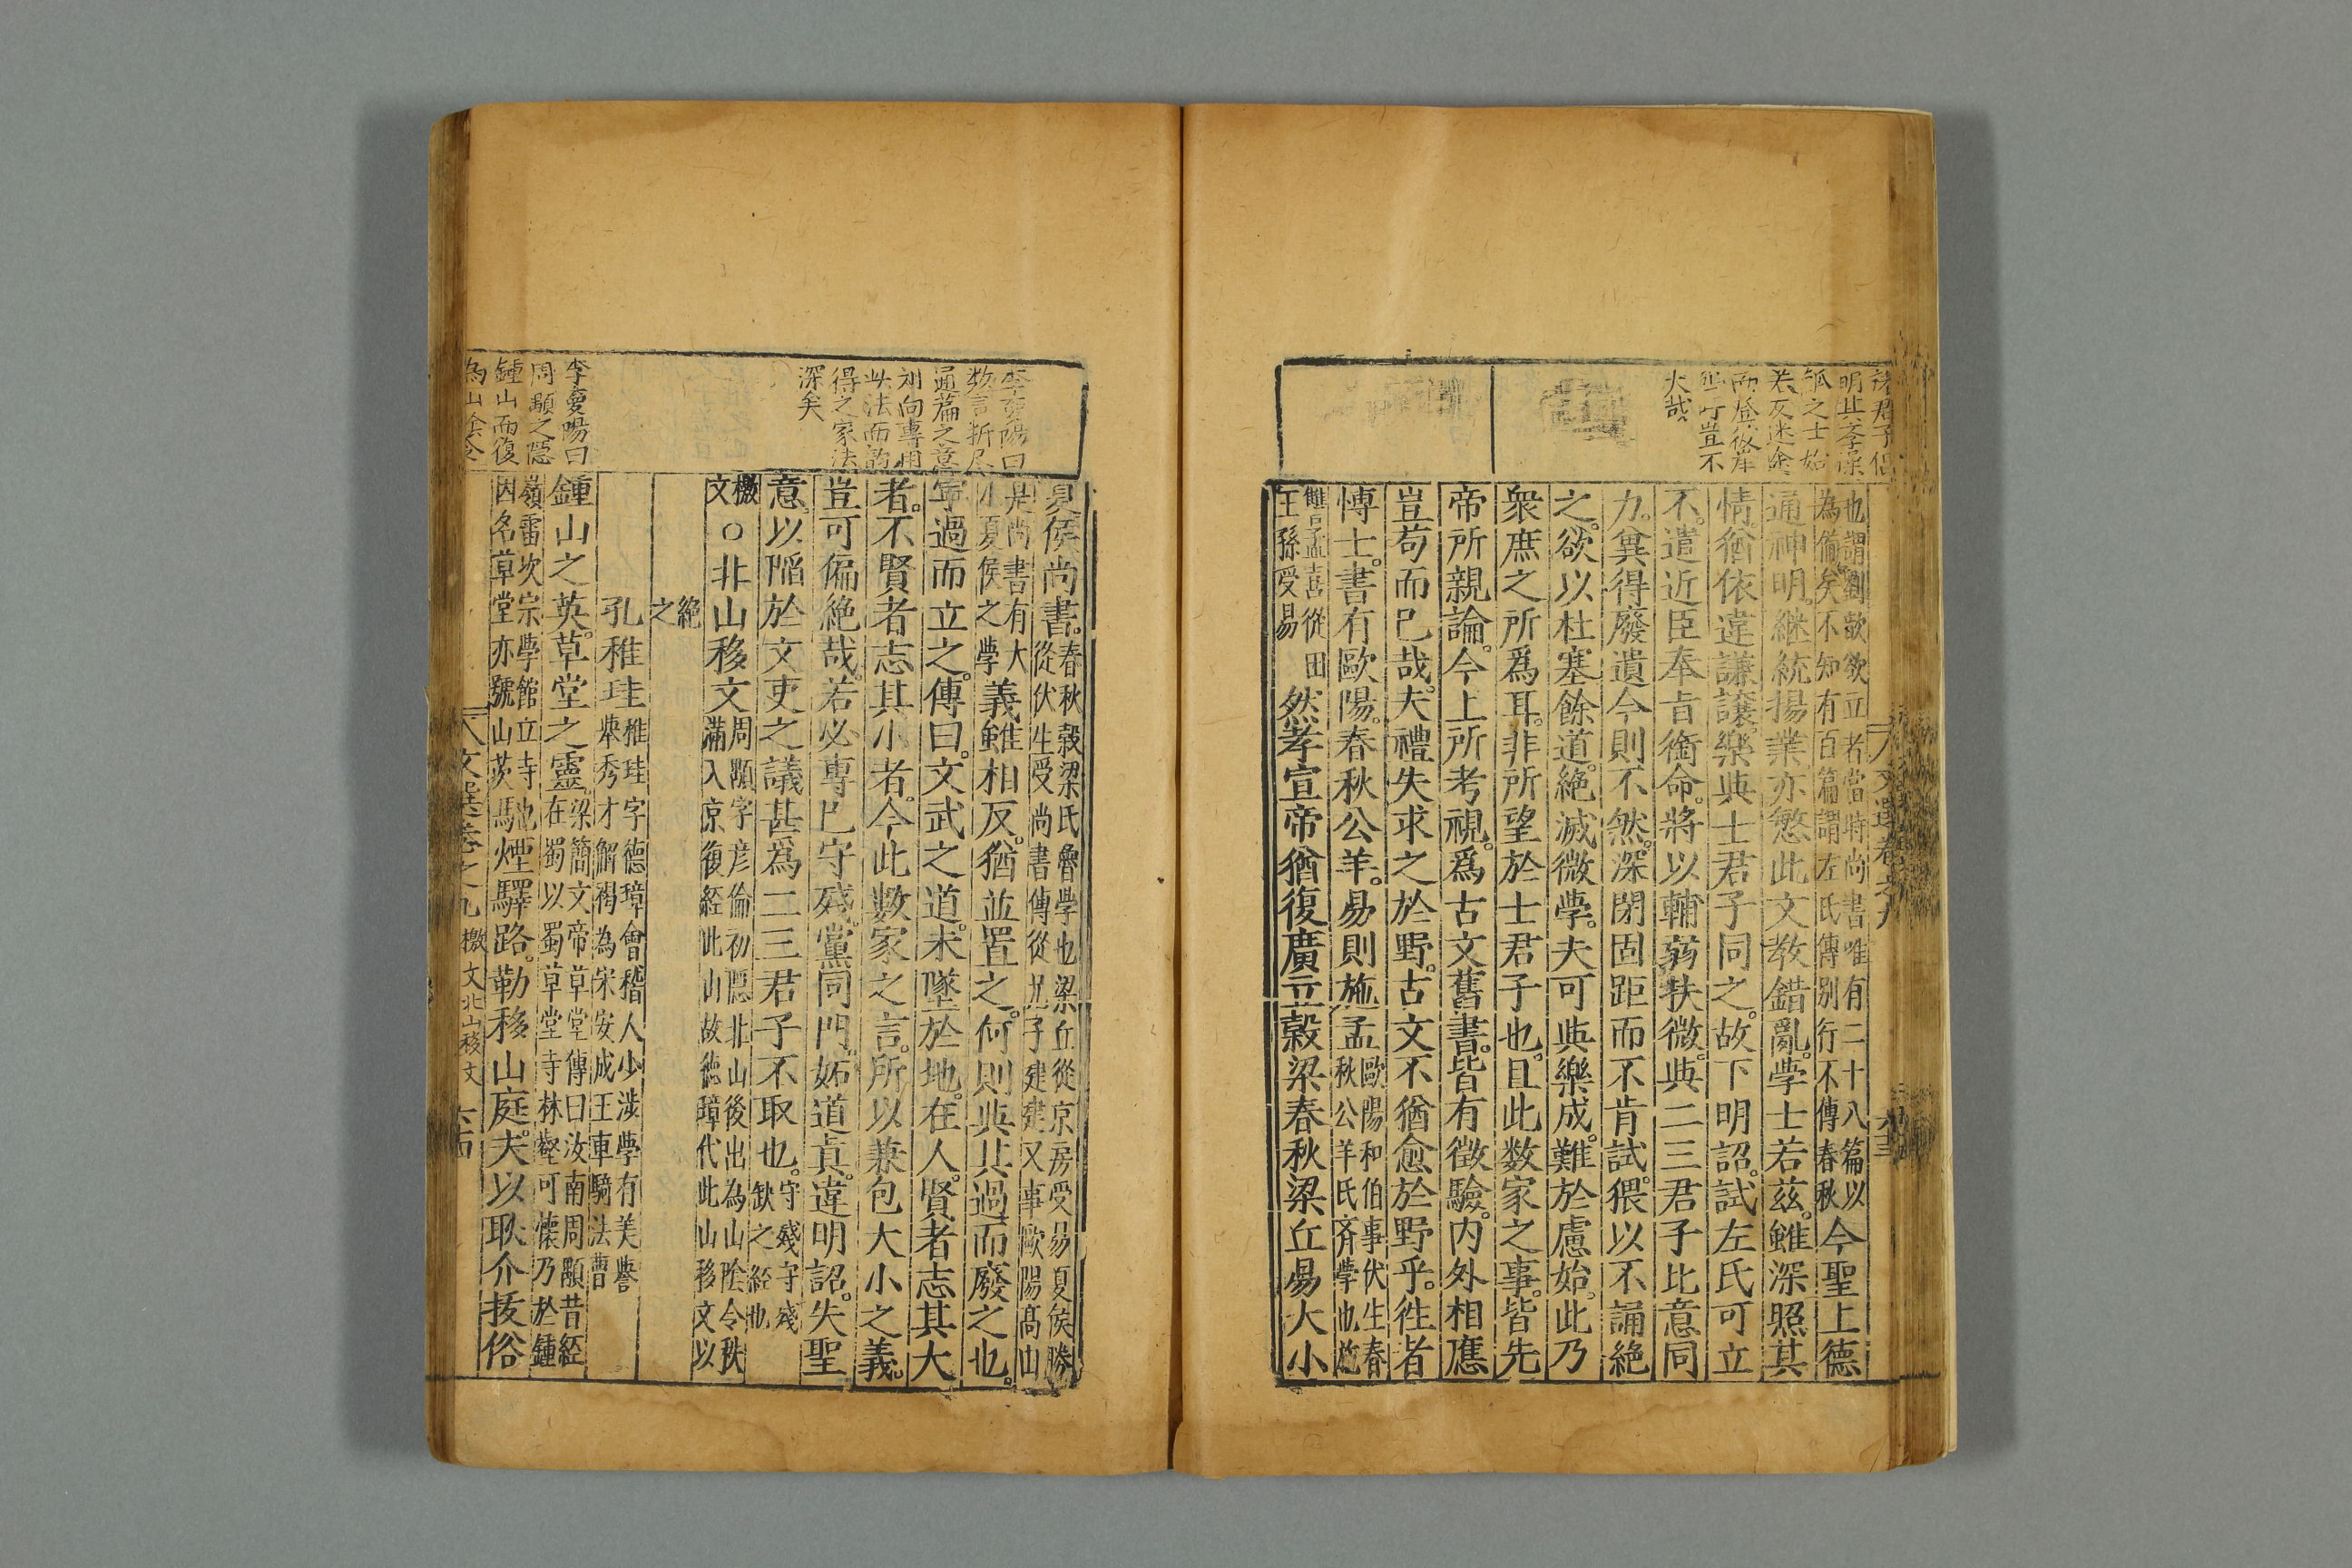 明其
弧之士
若反迷途
而登
豈不
大哉
也謂劉歆欲立者當時尚書唯有二十八篇以
為備矣不知有百篇謂左氏傳別行不傳春秋
今聖上德
通神明。継統揚業亦慜此文教錯亂。學士若茲。雖深照其
情。猶依違謙讓。樂與士君子同之。故下明詔。試左氏可立
不。遣近臣奉旨銜命。將以輔弱扶微。與二三君子比意同
力。冀得廢遺今則不然。深閉固距而不肯試。猥以不誦絶
之。欲以杜塞餘道。絶滅微學。夫可與樂成。難於慮始。此乃
衆庶之所爲耳。非所望於士君子也。且此数家之事。皆先
帝所親論。今上所考視。爲古文舊書。皆有徵驗。内外相應
豈苟而已哉。夫禮失求之於野。古文不猶愈於野乎。徃者
博士。書有歐陽。春秋公羊。易則施孟
歐陽和伯事伏生春
秋公羊氏齊學也施
讐孟喜從田
王孫受易
然孝宣帝猶復廣立穀梁春秋梁丘易大小
文選卷之九
六三
李夢陽曰
数言折尽
通篇之意
刘向專用
此法而韵
得之家法
深矣
李夢陽曰
周顒之隱
鍾山而復
為山陰令
夏侯尚書。
春秋穀梁氏魯學也梁丘從京房受易夏侯勝
從伏生受尚書傳從兄子建建又事歐陽髙由
是尚書有大
小夏侯之學
義雖相反。猶並置之。何則與其過而廢之也。
寧過而立之。傳曰。文武之道。未墜於地。在人。賢者志其大
者。不賢者志其小者。今此數家之言。所以兼包大小之義。
豈可偏絶哉。若必專己守殘。黨同門。妬道真。違明詔。失聖
意。以陷於文吏之議甚爲二三君子不取也。
守殘守殘
缺之經也
檄
文
○北山移文
周顒字彦倫初隱北山後出為山陰令秩
滿入京復経此山故徳璋代此山移文以
絶
之
孔稚珪
稚珪字德璋會稽人少涉學有美譽
舉秀才解褐為宋安成王車騎法曹
鍾山之英。草堂之靈。
梁簡文帝草堂傳曰汝南周顒昔経
在蜀以蜀草堂寺林壑可懷乃於鍾
嶺雷次宗學館立寺
因名草堂亦號山茨
馳煙驛路。勒移山庭。夫以耿介拔俗
文選卷之九
檄文北山移文
六四